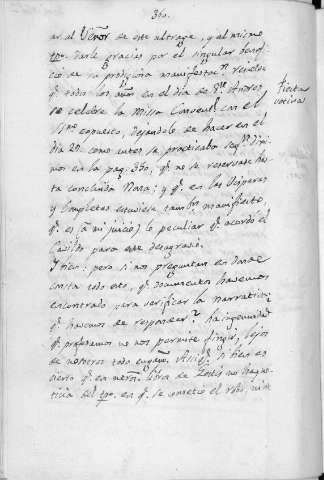 360.
ar al Señor de este ultrage, y al mismo
tpo. darle gracias por el singular benefi
cio de su prodigiosa manifestaon. resolvió
qe. todos los años en el día de Sn. Andres,
se celebre la Missa Conventl. con el
Smo. expuesto, dejandolo de hacer en el
dia 20. como antes se practicaba segn. diri
mos en la pag. 330, qe. no se reservase has
ta concluida Nona; y qe. en las Visperas
y Completas estuviese tambn. manifiesto,
qe. es (a mi juicio) lo peculiar qe. acordó el
Cavildo para este desagravio.
Y bien, pero si nos preguntan en donde
consta todo esto, qe. documentos hayamos
encontrado para verificar la narrativa
qe. hacemos de responder? La ingenuidad
qe. profesamos no nos permite fingir, lejos
de nosotros todo engaño. Assi qe. si bien es
cierto qe. en nros. libros de Actas no hay no
ticia del tpo. en qe. se cometió el robo, ni de
fiesta
votiva